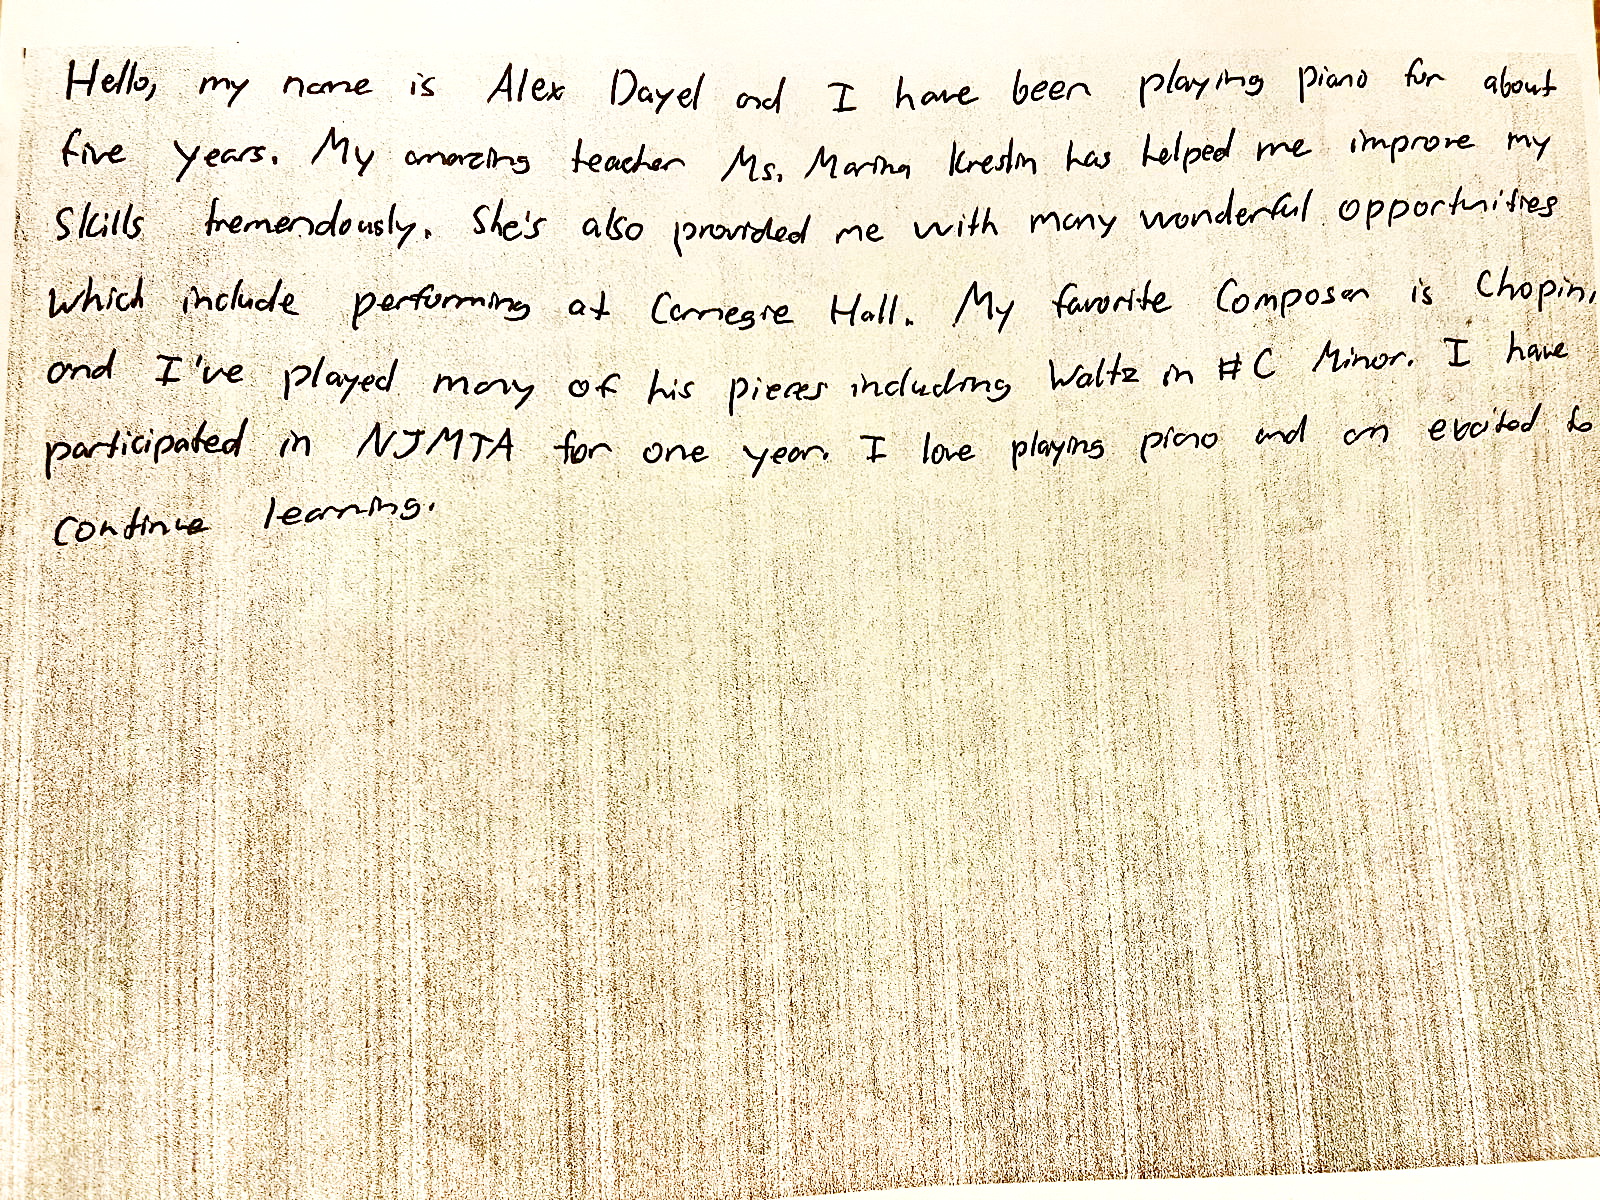 Hello, my name is Alex Dayel and I have been playing piano for about
five years. My amazing teacher Ms. Marina Kreslin has helped me improve my
skills tremendously. She's also provided me with many wonderful opportunities
which include performing at Carnegie Hall. My favorite composer is Chopin,
and I've played many of his pieces including Waltz in #C Minor. I have
participated in NJMTA for one year. I love playing piano and am excited to
continue learning.